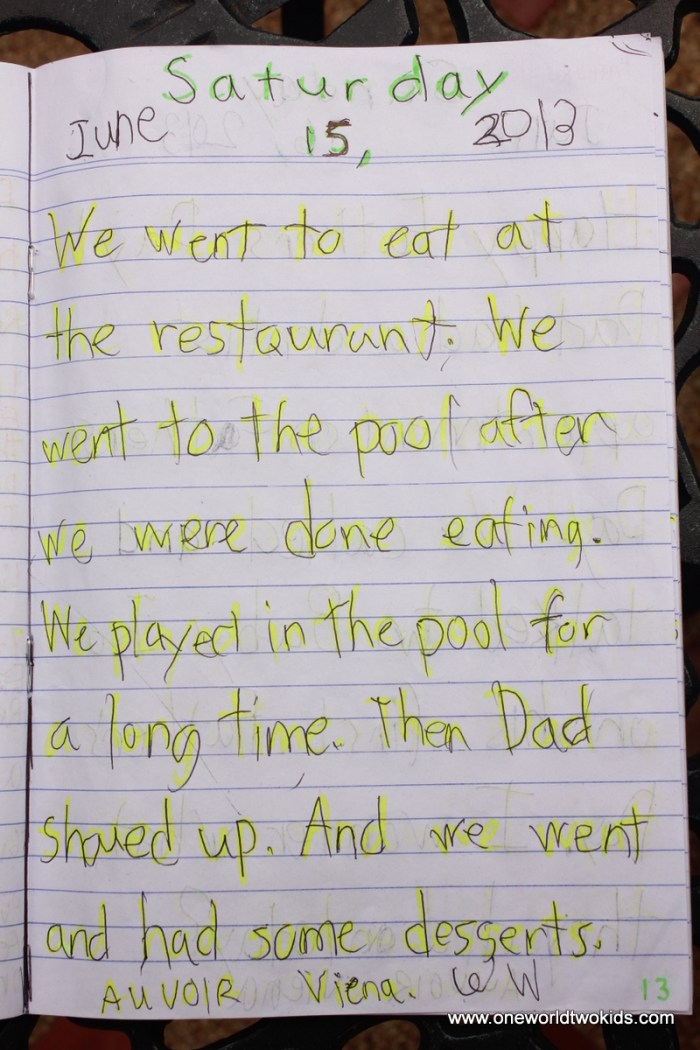 Saturday
June 15, 2013
We went to eat at
the restaurant. We
went to the pool after
we were done eating.
We played in the pool for
a long time. Then Dad
shoued up. And we went
and had some desserts.
AUVOIR Viena.
13
www.oneworldtwokids.com